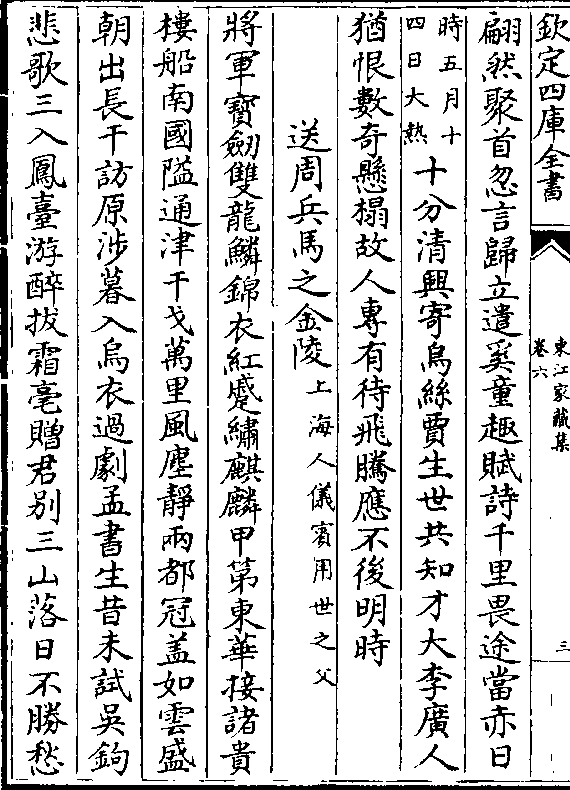 欽定四庫全書
東江家藏集
卷六
三
翩然聚首忽言歸立遣奚童趣賦詩千里畏途當赤日
時五月十
四日大熱
十分清興寄烏絲賈生世共知才大李廣人
猶恨數奇懸榻故人專有待飛騰應不後明時
送周兵馬之金陵上海人儀賓用世之父
將軍寶劒雙龍鱗錦衣紅蹙繡麒麟甲第東華接諸貴
樓船南國隘通津干戈萬里風塵靜兩都冠盖如雲盛
朝出長干訪原涉暮入烏衣過劇孟書生昔未試吳鉤
悲歌三入鳳臺游醉拔霜毫贈君别三山落日不勝愁